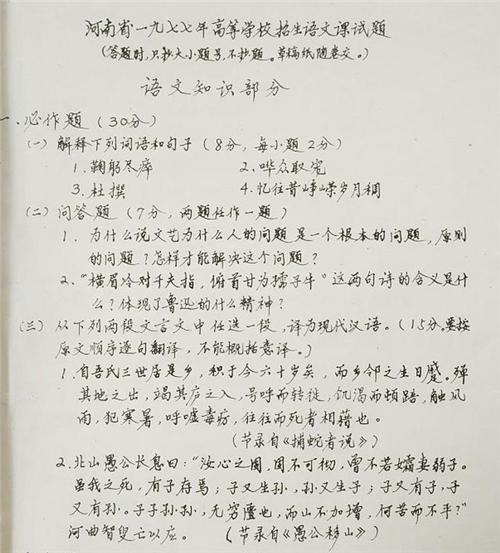 河南省一九七七年高等学校招生语文课试题
(答题时,只抄大小题号,不抄题。草稿纸随卷交。)
语文知识部分
一.必作题(30分)
(一)解释下列词语和句子(8分,每小题2分)
1.鞠躬尽瘁 2.哗众取宠
3.杜撰 4.忆往昔峥嵘岁月稠
(二)问答题(7分,两题任作一题)
1.为什么说文艺为什么人的问题是一个根本的问题,原则
的问题?怎样才能解决这个问题?
2.“横眉冷对千夫指,俯首甘为孺子牛”这两句诗的含义是什
么?体现了鲁迅的什么精神?
(三)从下列两段文言文中任选一段,译为现代汉语。(15分,要按
原文顺序逐句翻译,不能概括意译。)
1.自吾氏三世居是乡,积于今六十岁矣,而乡邻之生日蹙。殚
其地之出,竭其庐之入,号呼而转徙,饥渴而顿踣,触风
雨,犯寒暑,呼嘘毒疠,往往而死者相藉也。
(节录自《捕蛇者说》)
2.北山愚公长息曰:“汝心之固,固不可彻,曾不若孀妻弱子。
虽我之死,有子存焉;子又生孙,孙又生子;子又有子,子
又有孙。子子孙孙,无穷匮也,而山不加增,何苦而不平?”
河曲智叟亡以应。(节录自《愚公移山》)